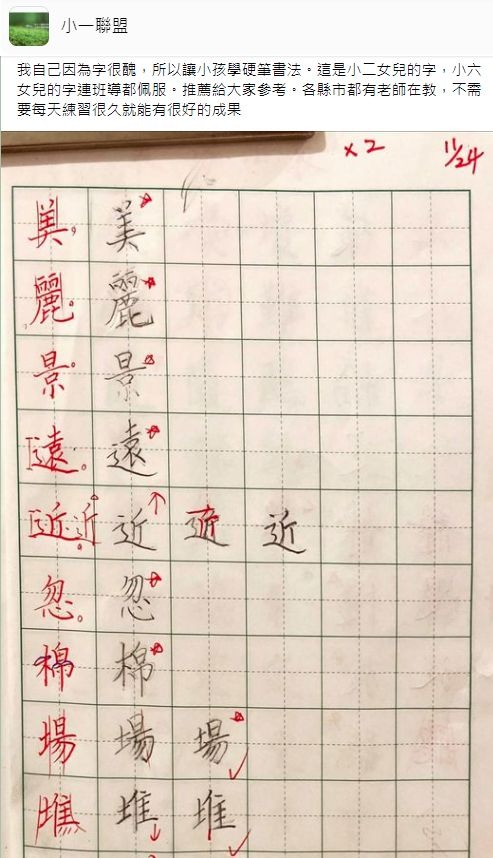 小一聯盟
我自己因為字很醜，所以讓小孩學硬筆書法。這是小二女兒的字，小六
女兒的字連班導都佩服。推薦給大家參考。各縣市都有老師在教，不需
要每天練習很久就能有很好的成果
x2 11/24
美 美
麗 麗
景 景
遠 遠
近 近 近 近 近
忽 忽
棉 棉
場 場 場
堆 堆